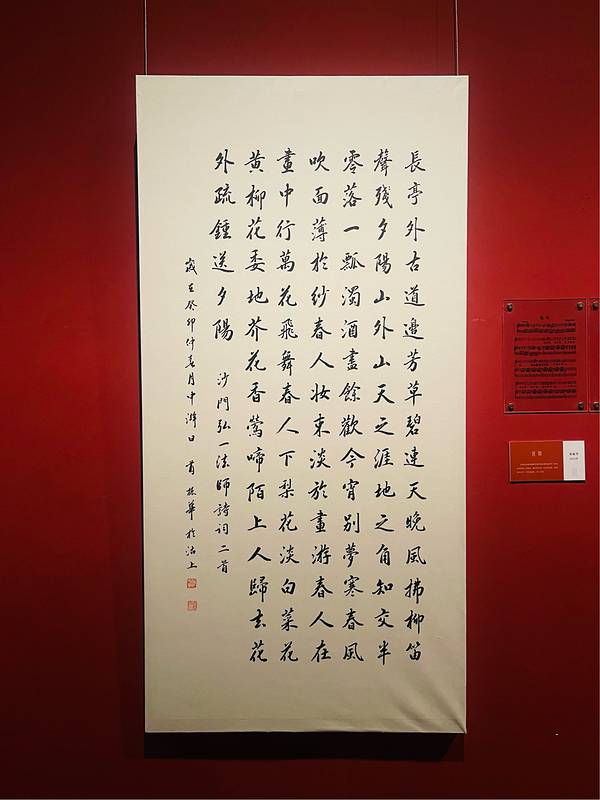 長亭外古道邊芳草碧連天晚風拂柳笛
聲殘夕陽山外山天之涯地之角知交半
零落一瓢濁酒盡餘歡今宵別夢寒春風
吹面薄於紗春人妝束淡於畫游春人在
畫中行萬花飛舞春人下梨花淡白菜花
黄柳花委地芥花香鶯啼陌上人歸去花
外疏鍾送夕陽
沙門弘一法師詩詞二首
歲在癸卯仲春月中澣日 華於沽上